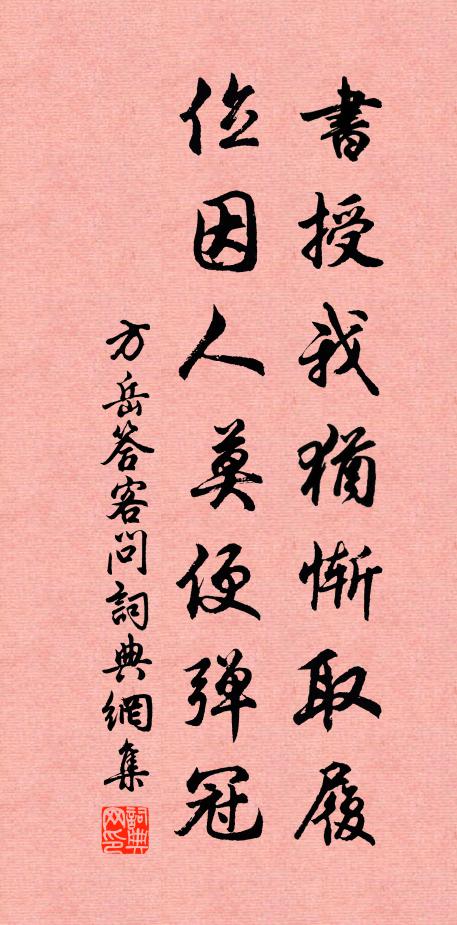 書授我猶慚取履
位因人莫便彈冠
方岳答客問詞典網集
詞典网印